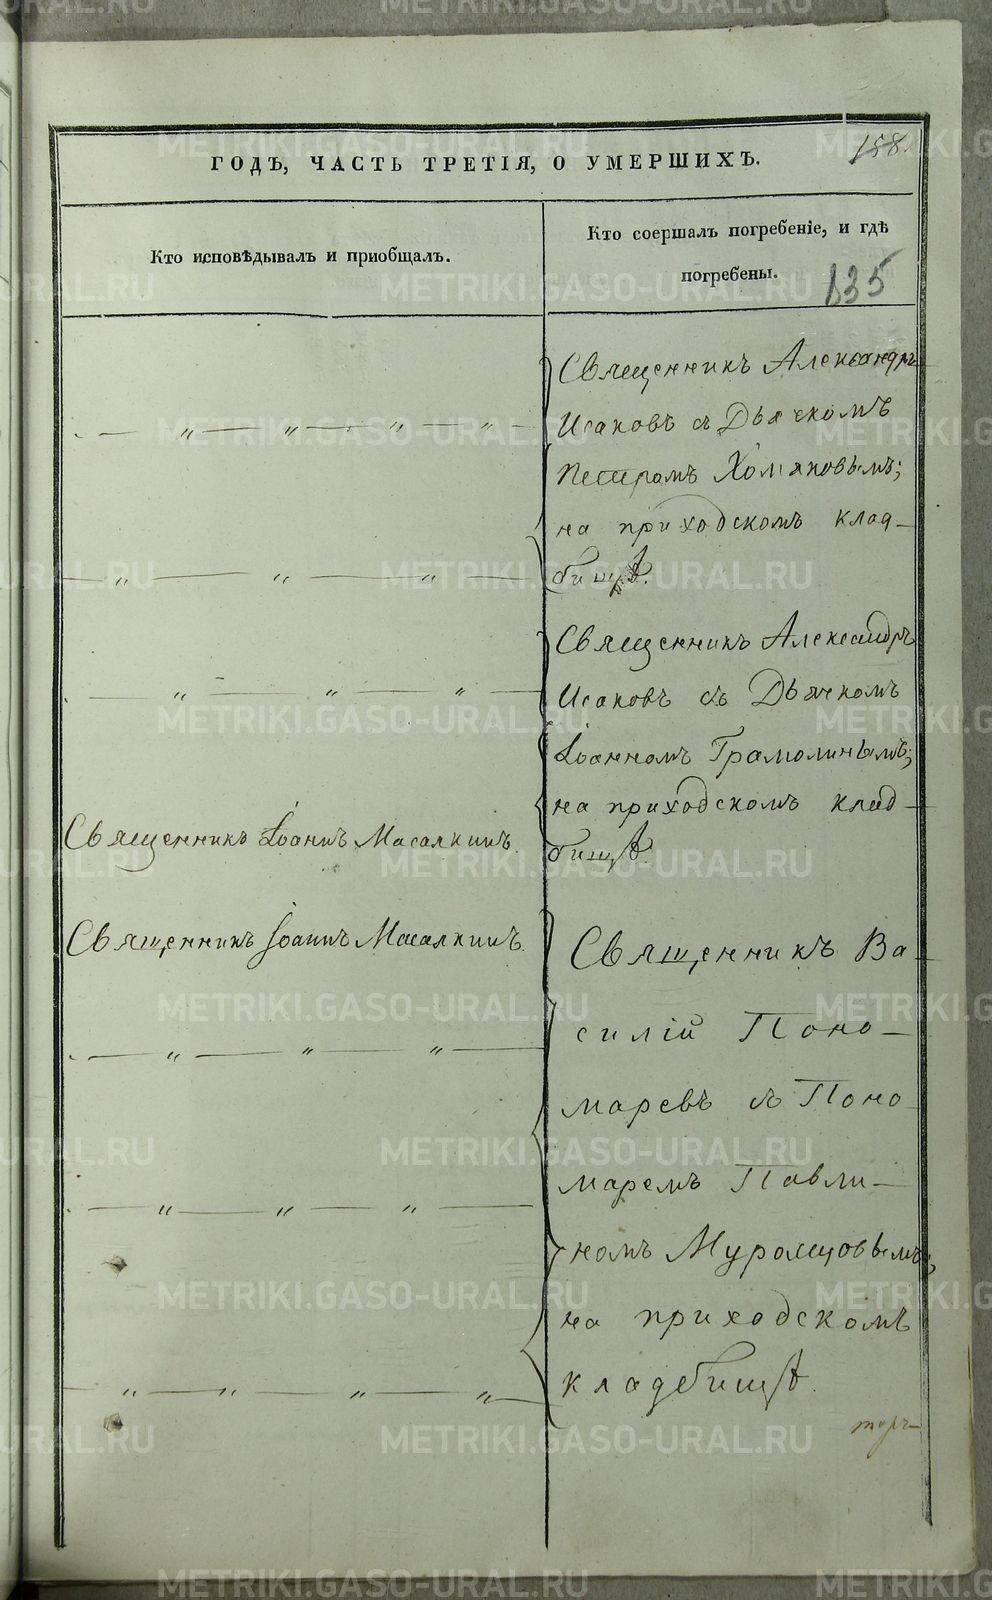 158.
ГОДЪ, ЧАСТЬ ТРЕТІЯ, О УМЕРШИХЪ.
Кто исповѣдывалъ и приобщалъ.
Кто соершалъ погребеніе, и гдѣ
погребены.
135
Священникъ Александръ
Исаковъ съ Дьячкомъ
Петромъ Хомяковымъ;
на приходскомъ клад-
бищѣ.
Священникъ Александръ
Исаковъ съ Дьячкомъ
Іоанномъ Грамолинымъ;
на приходскомъ клад-
бищѣ.
Священникъ Іоаннъ Масалкинъ.
Священникъ Іоаннъ Масалкинъ.
Священникъ Ва-
силій Поно-
маревъ съ Поно-
маремъ Павли-
номъ Муромцовымъ;
на приходскомъ
кладбищѣ.
METRIKI.GASO-URAL.RU